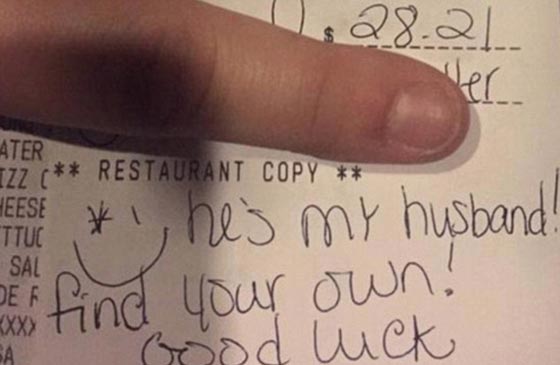 $ 28.21
** RESTAURANT COPY **
ATER
IZZ C
HEESE
TTUC
SAL
DE F
he's my husband!
find your own!
Good luck